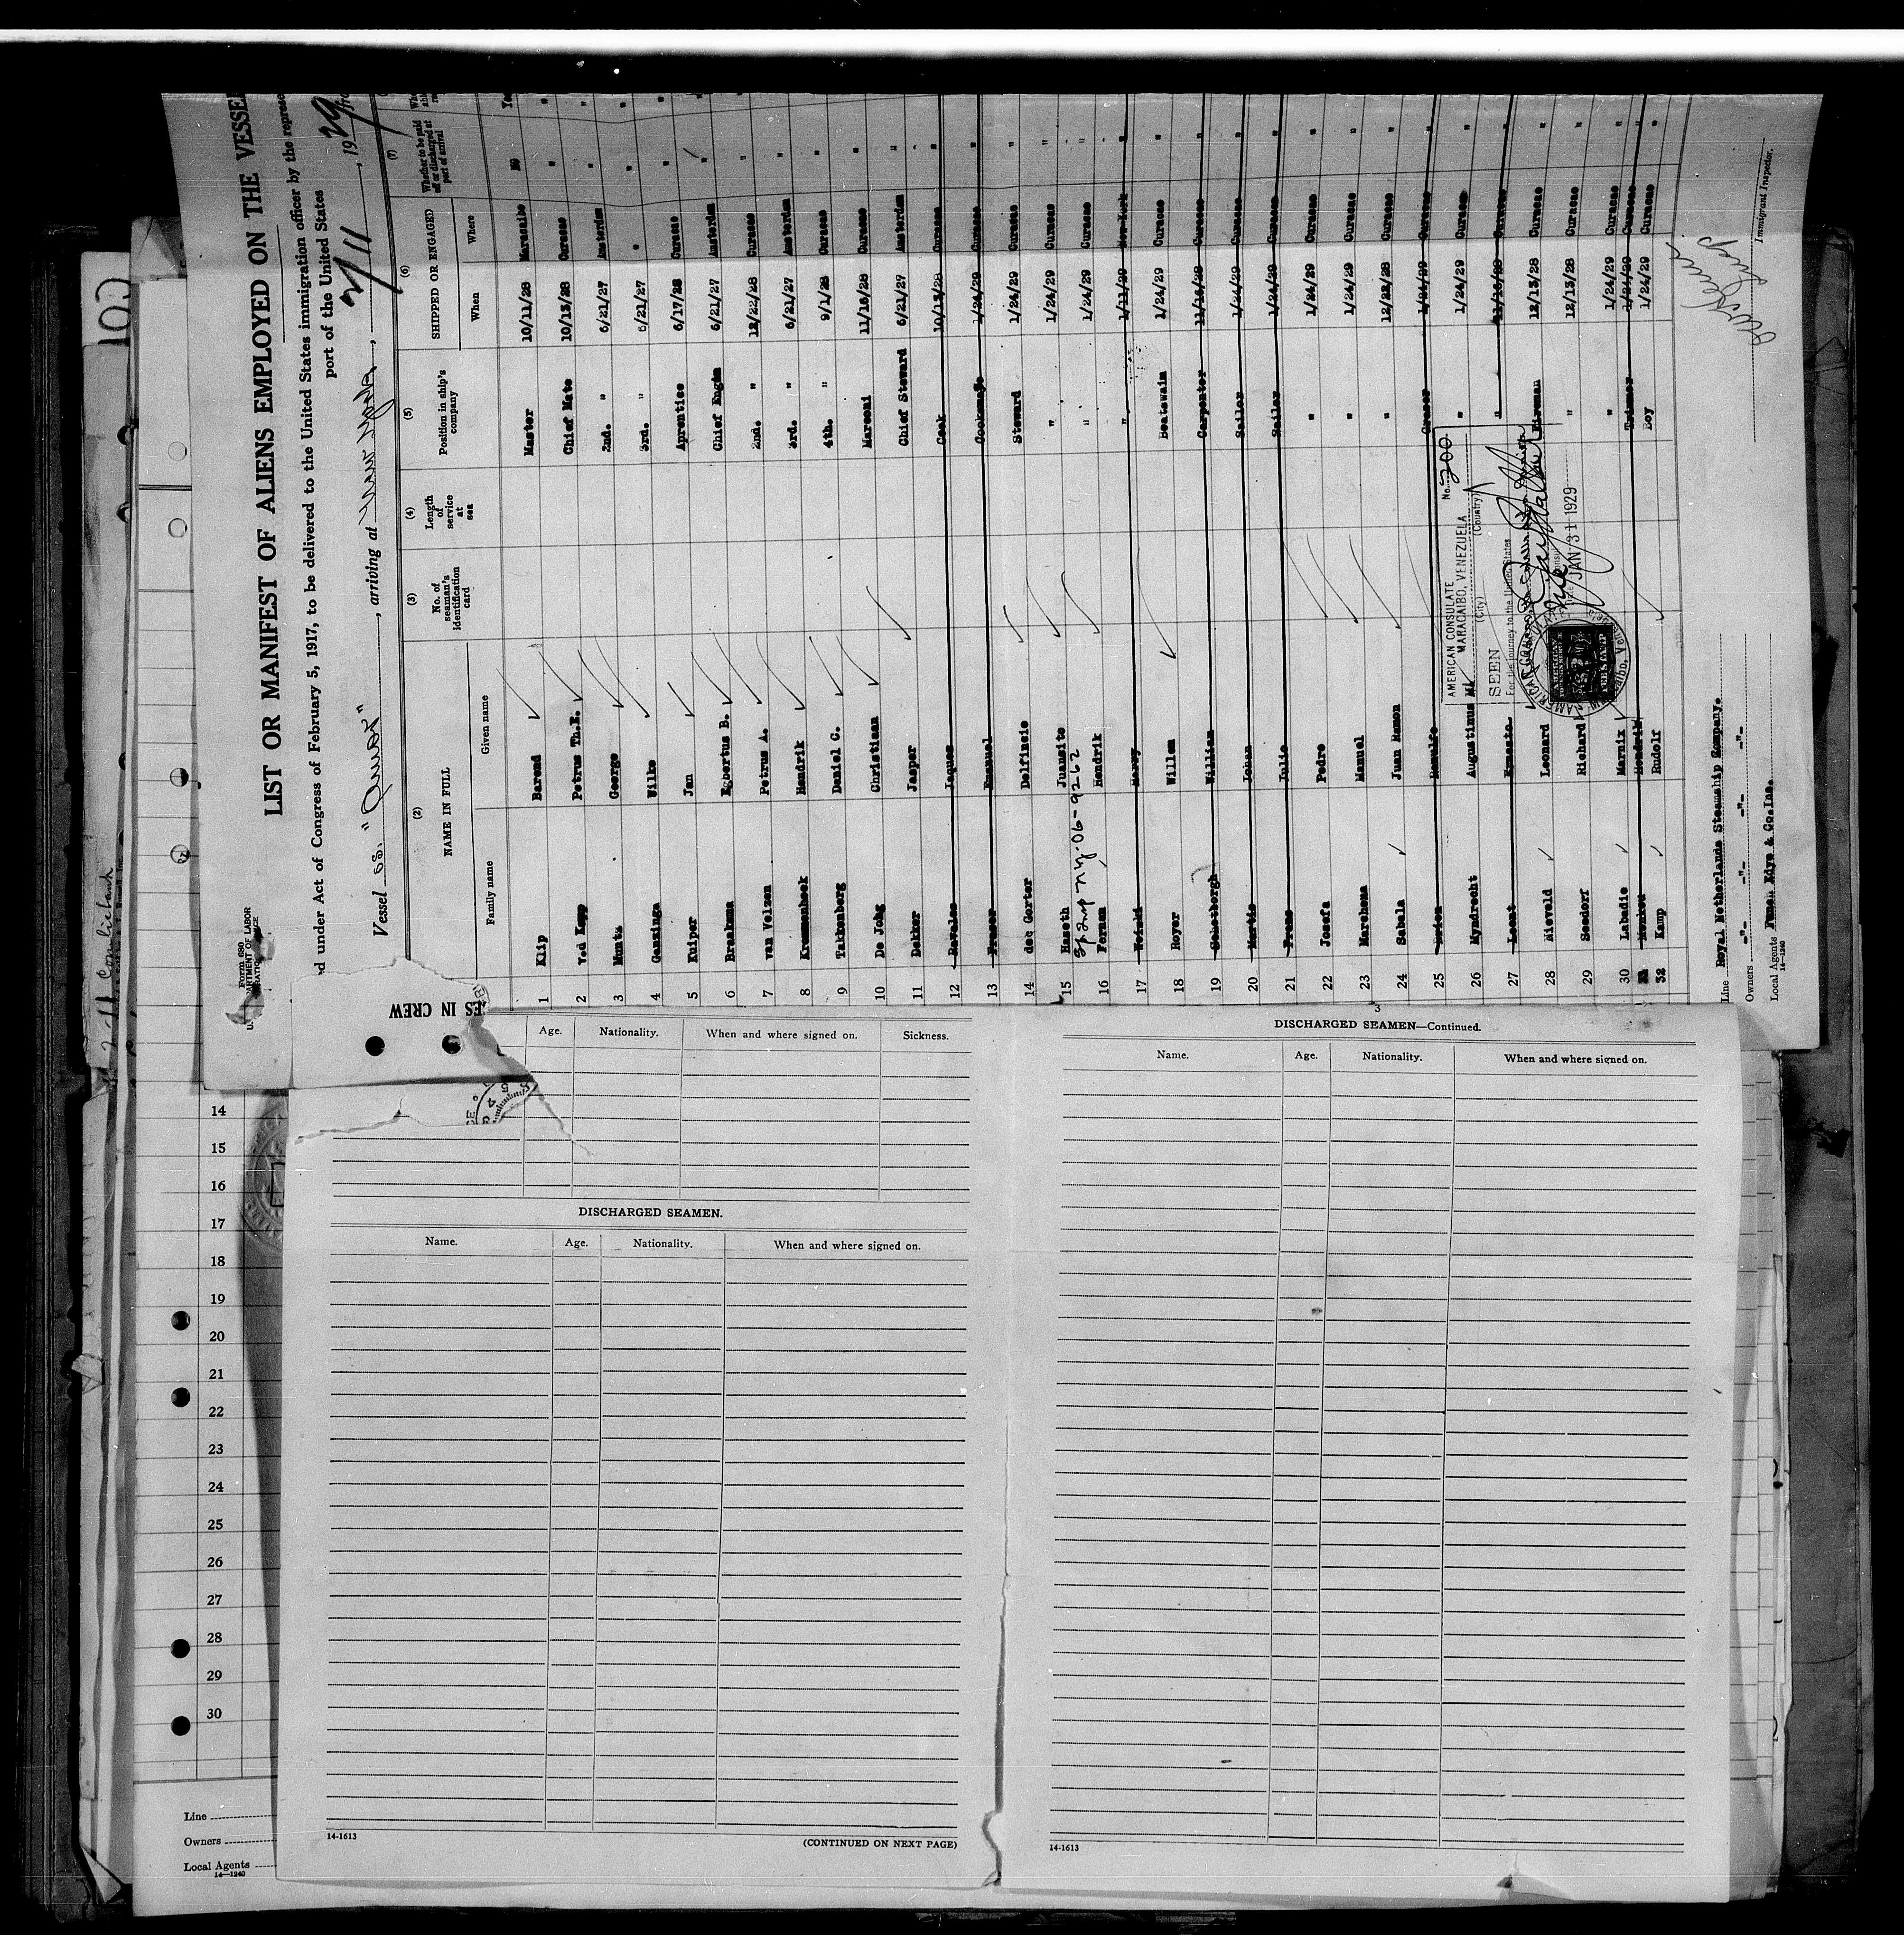 LIST OR MANIFEST OF ALIENS EMPLOYED ON THE VESSEL
Form 680
U. S. DEPARTMENT OF LABOR
under Act of Congress of February 5, 1917, to be delivered to the United States immigration officer by the represe
port of the United States
Vessel ss. , arriving at New York, 2/11, 1929
(2) (3) (4) (5) (6) (7)
NAME IN FULL
Family name Given name
No. of seaman's identification card
Length of service at sea
Position in ship's company
SHIPPED OR ENGAGED
When Where
Whether to be paid off or discharged at port of arrival
1 Klip Barend Master 10/11/28 Maracaibo No
2 Petrus Th.E. Chief Mate 10/13/28 Curacao "
3 Muntz George 2nd. " 6/21/27 Amsterdam "
4 Ganzinga Wilke 3rd. " 6/21/27 " "
5 Kuiper Jan Aprentice 6/17/28 Curacao "
6 Braaksma Egbertus B. Chief 6/21/27 Amsterdam "
7 van Velzen Petrus A. 2nd. " 12/22/28 Curacao "
8 Hendrik 3rd. " 6/21/27 Amsterdam "
9 Takkenberg Daniel C. 4th. " 9/1/28 Curacao "
10 De Jong Christiaan Marconi 11/16/28 Curacao "
11 Dekker Jasper Chief Steward 6/21/27 Amsterdam "
12 Jaques Cook 10/13/28 Curacao "
13 Fraser Emanuel 1/24/29 Curacao "
14 de Gorter Delfinsio Steward 1/24/29 Curacao "
15 Haseth Juansito " 1/24/29 Curacao "
16 Hendrik " 1/24/29 Curacao "
17 Harry " 1/11/29 New York "
18 Royer Willem Boatswain 1/24/29 Curacao "
19 Willem Carpenter 11/16/28 Curacao "
20 Martis Johan Sailor 1/24/29 Curacao "
21 Frans Julio Sailor 1/24/29 Curacao "
22 Josefa Pedro " 1/24/29 Curacao "
23 Marchena Manuel " 1/24/29 Curacao "
24 Sabala Juan Ramon " 12/22/28 Curacao "
25 Greaser 1/24/29 Curacao "
26 Myndrecht Augustinus " 1/24/29 Curacao "
27 Ernesto " 11/16/28 Curacao "
28 Nievald Leonard Fireman 12/13/28 Curacao "
29 Seedorf Richard " 12/13/28 Curacao "
30 Labadie Marnix " 1/24/29 Curacao "
31 Hendrik Trimmer 1/24/29 Curacao "
32 Kamp Rudolf Boy 1/24/29 Curacao "
AMERICAN CONSULATE
MARACAIBO, VENEZUELA
(City) (Country)
No. 200
SEEN
For the journey to the United States
JAN 31 1929
Line Royal Netherlands Steamship Company.
Owners -"- -"- -"- -"-
Local Agents Funch Edye & Co.Inc.
14-1240
Immigrant Inspector.
ES IN CREW
Age. Nationality. When and where signed on. Sickness.
DISCHARGED SEAMEN.
Name. Age. Nationality. When and where signed on.
14-1613
(CONTINUED ON NEXT PAGE)
3
DISCHARGED SEAMEN—Continued.
Name. Age. Nationality. When and where signed on.
14-1613
14
15
16
17
18
19
20
21
22
23
24
25
26
27
28
29
30
Line
Owners
Local Agents
14-1240